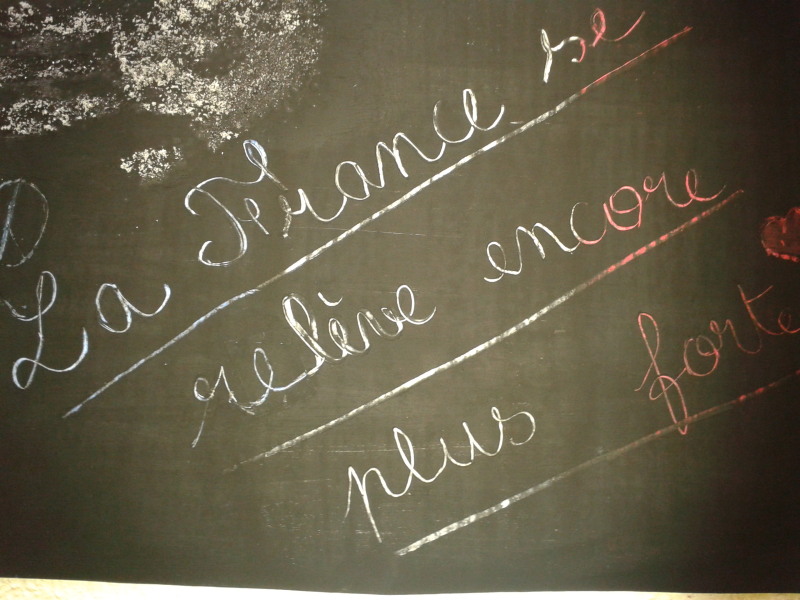 La France se
relève encore
plus forte